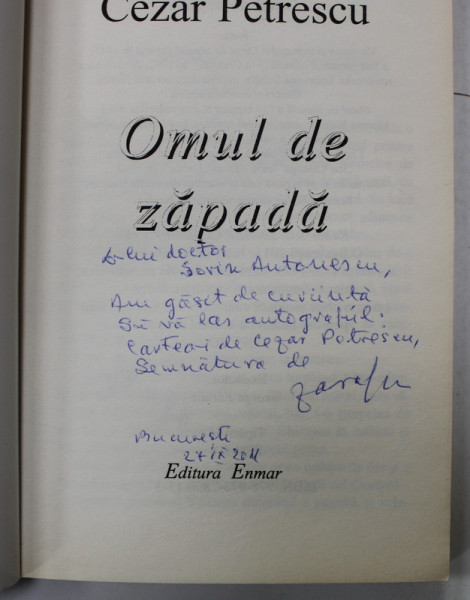 Cezar Petrescu
Omul de
zăpadă
D-lui doctor
Sorin Antonescu,
Am găsit de cuviință
Să vă las autograful:
Cartea-i de Cezar Petrescu,
Semnătura de
București
27 IX 2011
Editura Enmar